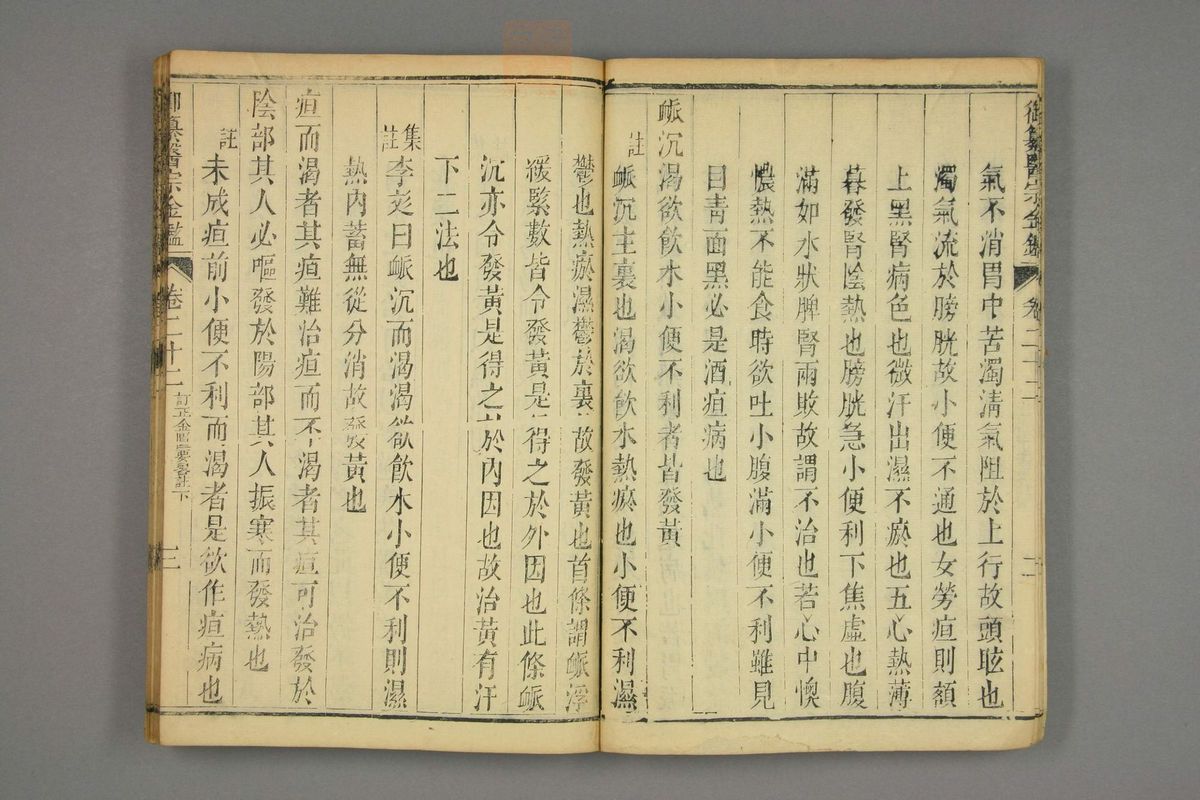 御纂醫宗金鑑 卷二十二 二
氣不消胃中苦濁淸氣阻於上行故頭眩也
濁氣流於膀胱故小便不通也女勞疸則額
上黑腎病色也微汗出濕不瘀也五心熱薄
暮發腎陰熱也膀胱急小便利下焦虛也腹
滿如水狀脾腎兩敗故謂不治也若心中懊
憹熱不能食時欲吐小腹滿小便不利雖見
目青面黑必是酒疸病也
脈沉渴欲飮水小便不利者皆發黃
註 脈沉主裏也渴欲飮水熱瘀也小便不利濕
鬱也熱瘀濕鬱於裏故發黃也首條謂脈浮
緩緊數皆令發黃是得之於外因也此條脈
沉亦令發黃是得之於內因也故治黃有汗
下二法也
集註 李彣曰脈沉而渴渴欲飮水小便不利則濕
熱內蓄無從分消故發黃也
疸而渴者其疸難治疸而不渴者其疸可治發於
陰部其人必嘔發於陽部其人振寒而發熱也
註 未成疸前小便不利而渴者是欲作疸病也
御纂醫宗金鑑 卷二十二 訂正金匱要畧註下 三